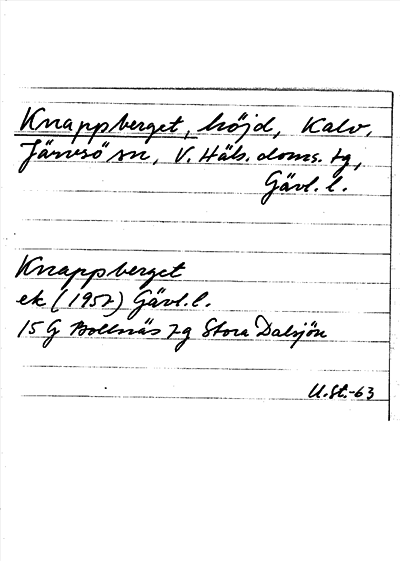 Knappberget, höjd, Kalv.
Järvsö sn, V. Häls. doms. tg,
Gävl. l.
Knappberget
ek (1957) Gävl. l.
15 G Bollnäs 7g Stora Dalsjön
U.St.-63